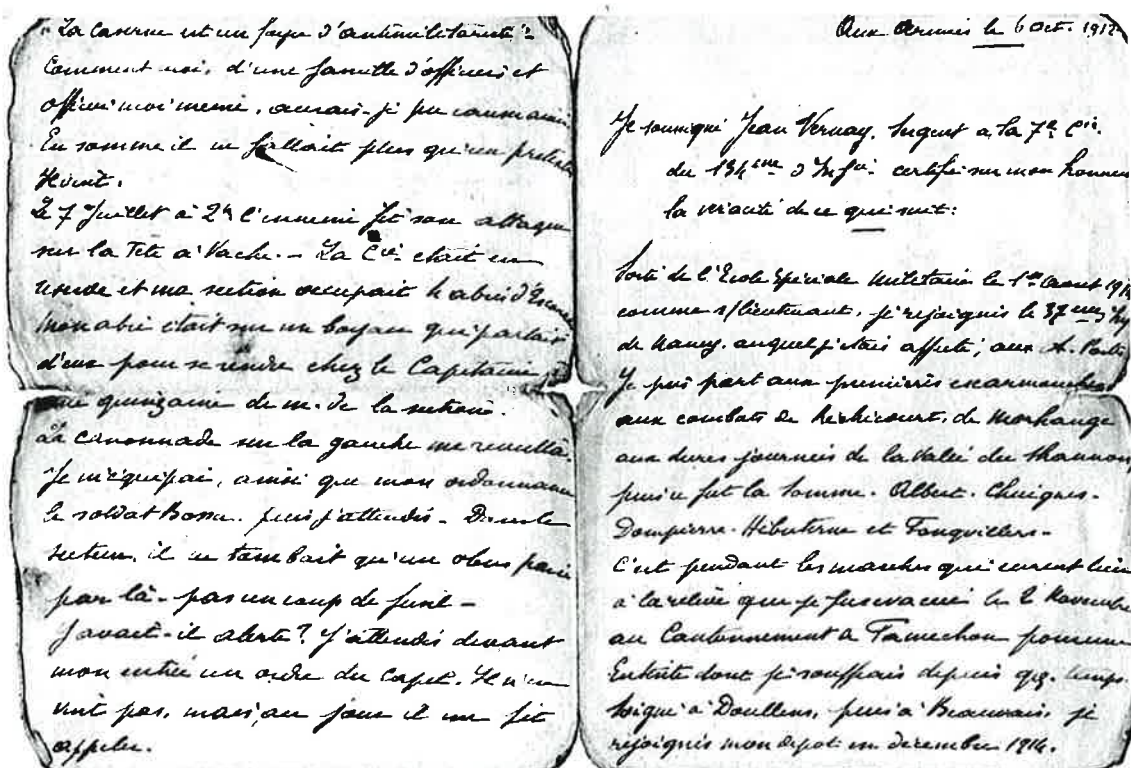 "La caserne est un foyer d'antimilitariste"-
Comment moi, d'une famille d'officiers et
officier moi même, aurais-je pu
En somme il ne fallait plus qu'un prétexte
Il vint.
Le 7 Juillet à 2h l'ennemi fit son attaque
sur la Tête à Vache. - La Cie était en
réserve et ma section occupait
mon abri était sur un boyau qui partait
d'eux pour se rendre chez le Capitaine,
une quinzaine de m. de la section.
La canonnade sur la gauche me réveilla.
Je m'équipai, ainsi que mon ordonnance
le soldat Bossu. puis j'attendis - Dans le
secteur, il ne tombait qu'un obus par ci
par là - pas un coup de fusil -
Y avait-il alerte? J'attendis devant
mon entrée un ordre du capit. Il n'en
vint pas, mais, au jour il me fit
appeler.
Aux Armées le 6 Oct. 191
Je soussigné Jean Vernay, Sergent à la 7e Cie.
du 134eme d'Infie. certifie sur mon honneur
la véracité de ce qui suit:
Sorti de l'Ecole Spéciale Militaire le 1er Aout 1914
comme s/lieutenant, je rejoignis le 37eme
de Nancy, auquel j'étais affecté; aux A. Postes
Je pris part aux premières escarmouches
aux combats de Réchicourt, de Morhange
aux dures journées de la Vallée du
puis ce fut la Somme. Albert. Chuignes.
Dompierre. Hébuterne et Fonquillers-
C'est pendant les marches qui eurent lieu
à la relève que je fus évacué le 2 Novembre
au Cantonnement à Famechon pour une
Entérite dont je souffrais depuis qq. temps.
Soigné à Doullens, puis à Beauvais, je
rejoignis mon dépôt en décembre 1914.